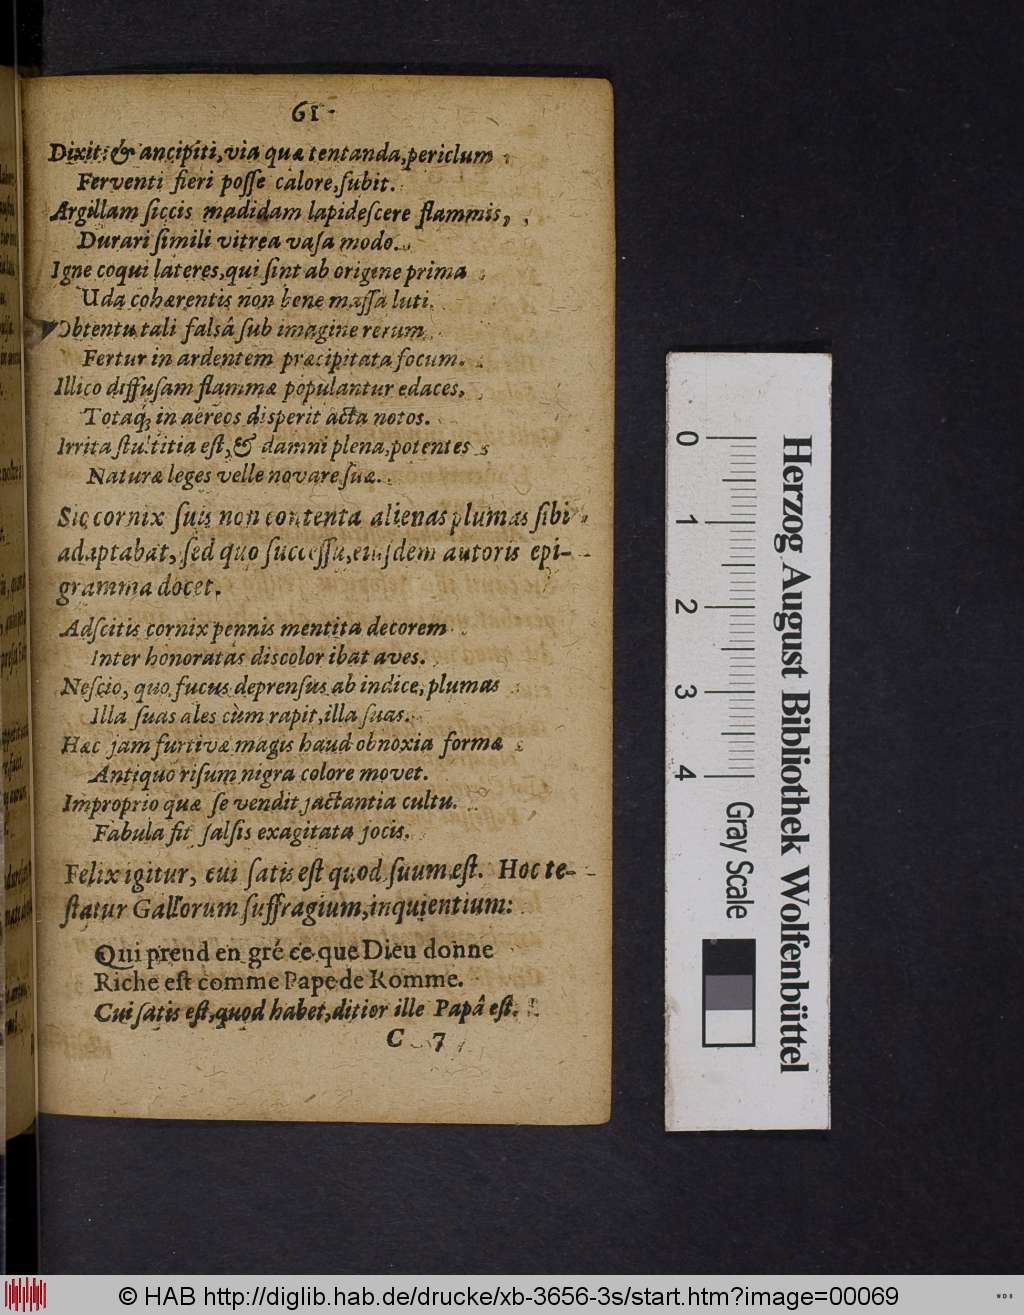 61
Dixit: & ancipiti, via quæ tentanda, periclum
Ferventi fieri poſſe calore, ſubit.
Argillam ſiccis madidam lapideſcere flammis,
Durari ſimili vitrea vaſa modo.
Igne coqui lateres, qui ſint ab origine prima
Uda cohærentis non bene maſſa luti.
Obtentu tali falsâ ſub imagine rerum,
Fertur in ardentem præcipitata focum.
Illico diffuſam flammæ populantur edaces,
Totaq; in aëreos disperit acta notos.
Irrita ſtultitia eſt, & damni plena, potentes
Naturæ leges velle novare ſuæ.
Sic cornix ſuis non contenta alienas plumas ſibi
adaptabat, ſed quo ſucceſſu, ejuſdem autoris epi-
gramma docet.
Adſcitis cornix pennis mentita decorem
Inter honoratas discolor ibat aves.
Neſcio, quo fucus deprenſus ab indice, plumas
Illa ſuas ales cùm rapit, illa ſuas.
Hæc jam furtivæ magis haud obnoxia formæ
Antiquo riſum nigra colore movet.
Improprio quæ ſe vendit jactantia cultu.
Fabula fit ſalſis exagitata jocis.
Felix igitur, cui ſatis eſt quod ſuum eſt. Hoc te-
ſtatur Gallorum ſuffragium, inquientium:
Qui prend en gré ce que Dieu donne
Riche eſt comme Pape de Romme.
Cui ſatis eſt, quod habet, ditior ille Papâ eſt.
C 7
0 1 2 3 4
Herzog August Bibliothek Wolfenbüttel
Gray Scale
© HAB http://diglib.hab.de/drucke/xb-3656-3s/start.htm?image=00069